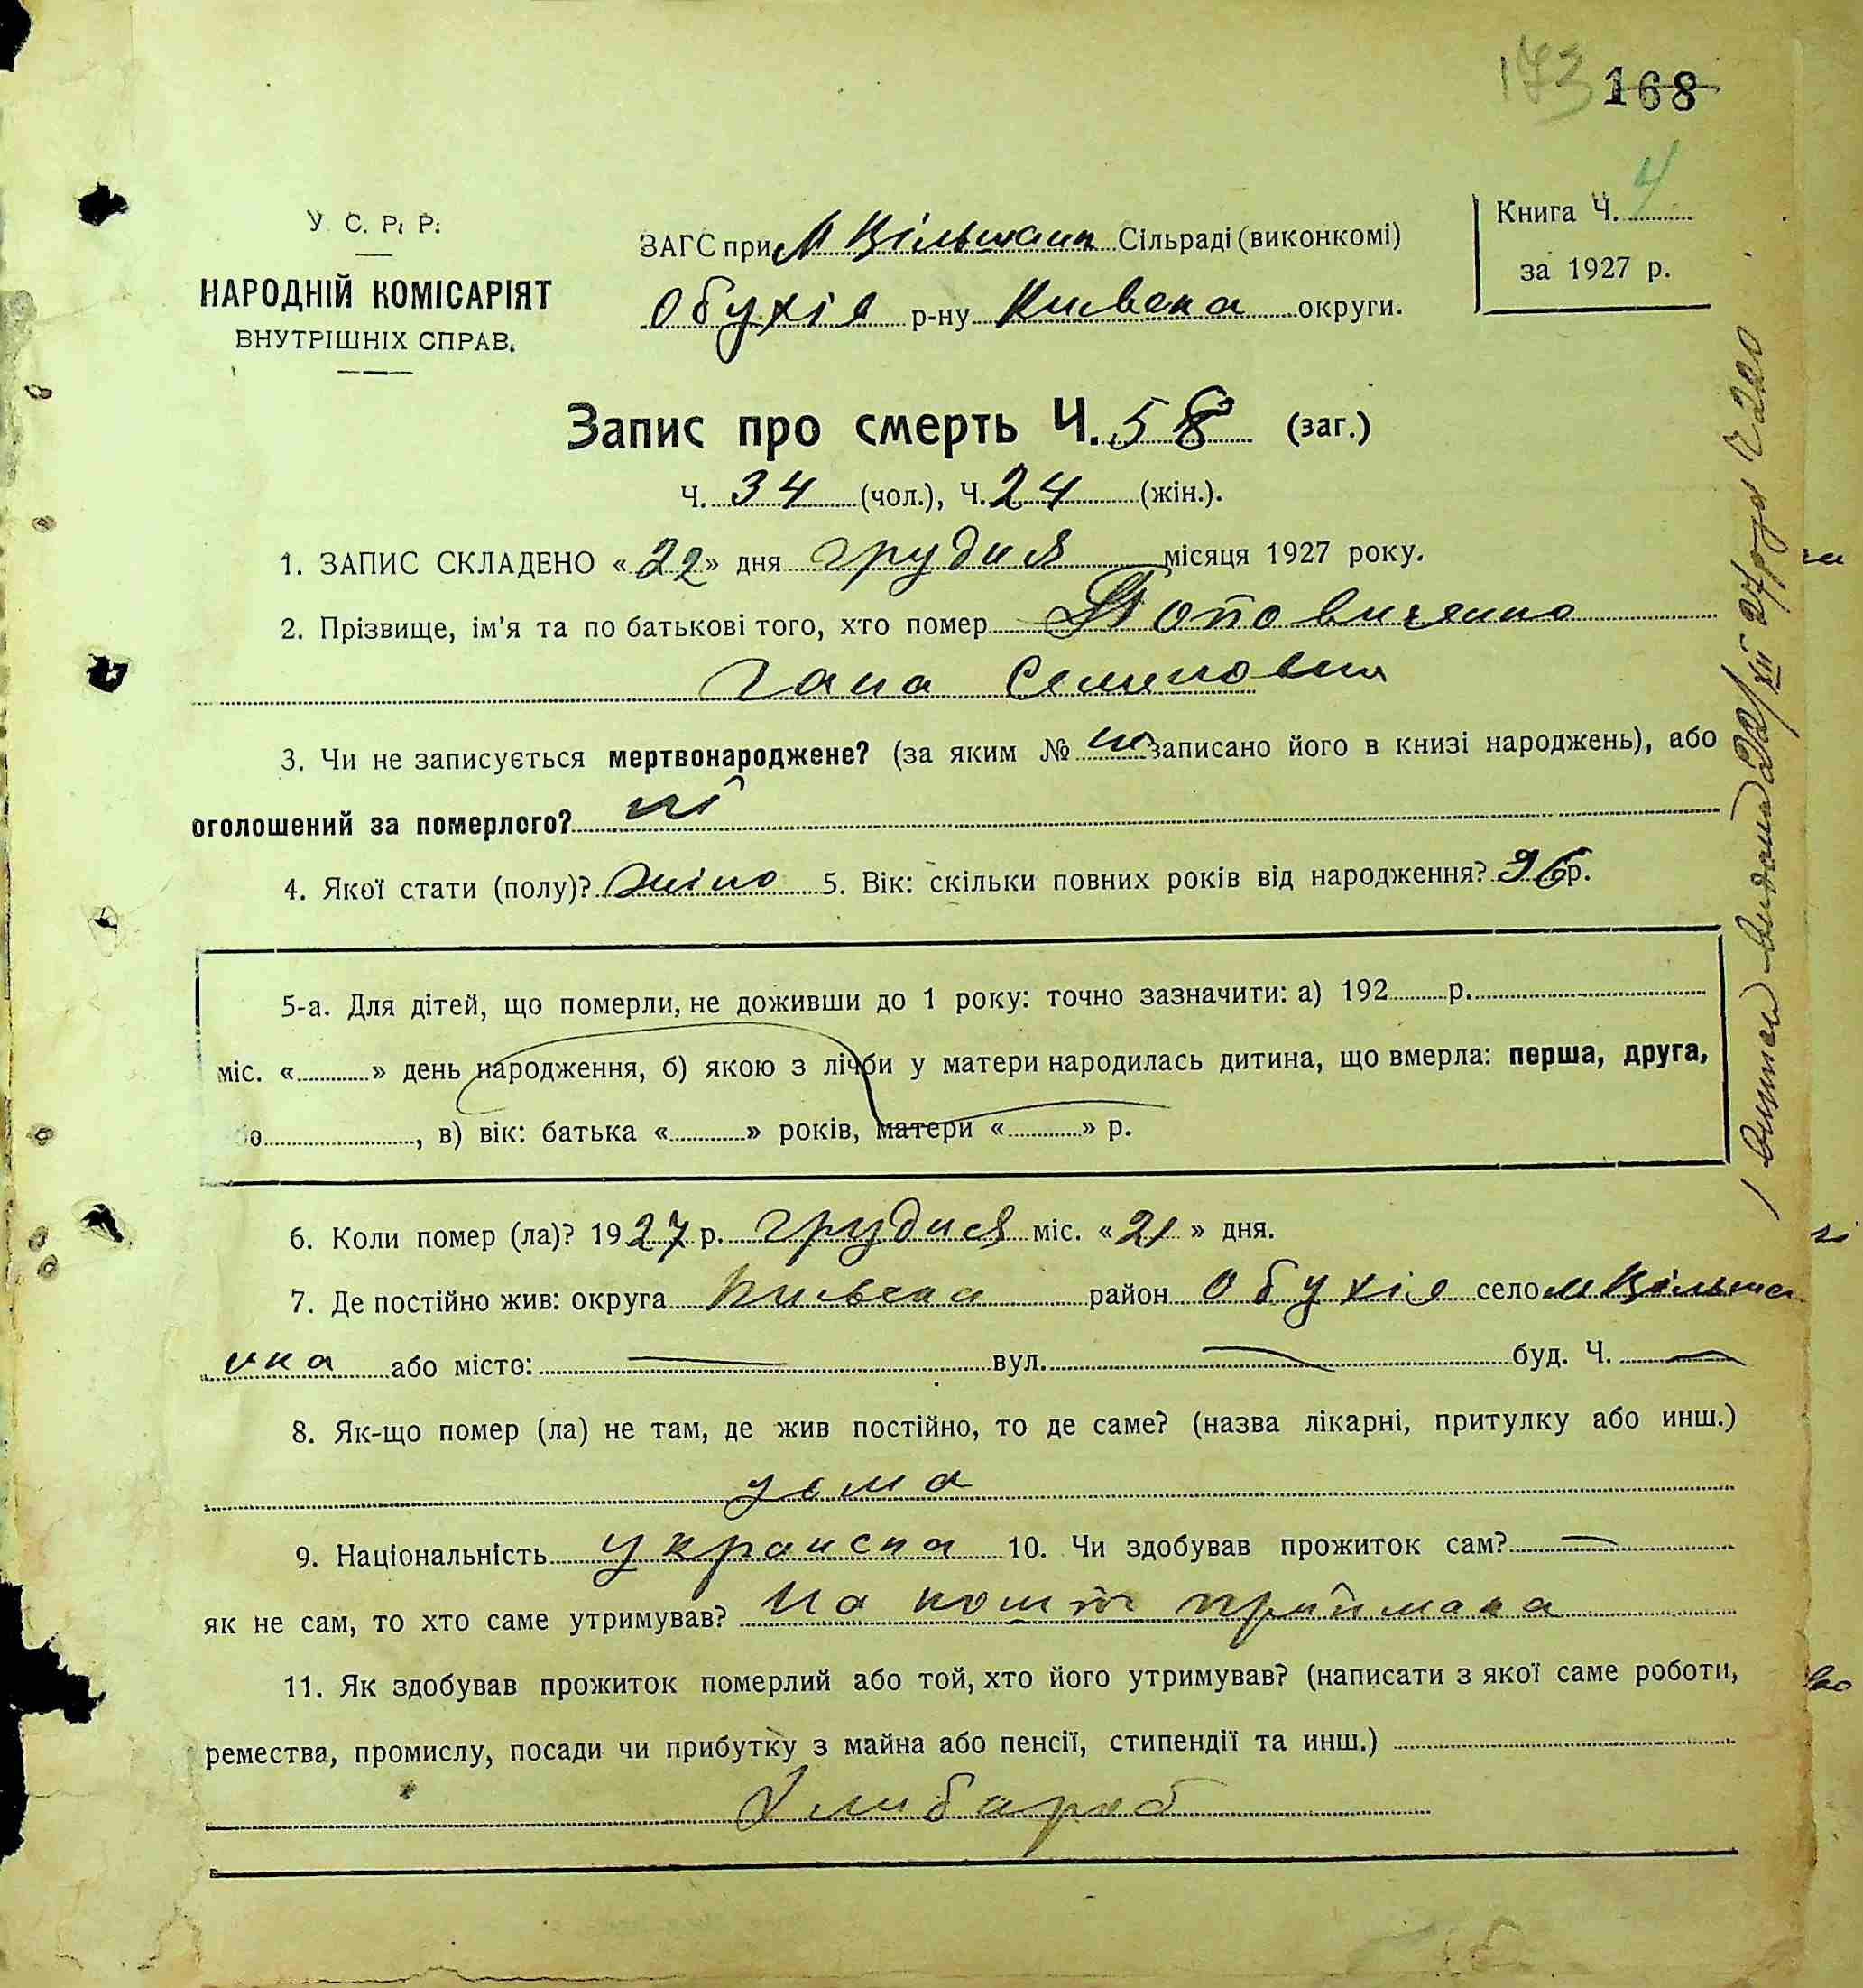 173 168
У. С. Р. Р.
НАРОДНІЙ КОМІСАРІЯТ
ВНУТРІШНІХ СПРАВ.
ЗАГС при М Вільшанк Сільраді (виконкомі)
Обухів р-ну Київска округи.
Книга Ч. 4
за 1927 р.
Запис про смерть Ч. 58 (заг.)
Ч. 34 (чол.), Ч. 24 (жін.).
1. ЗАПИС СКЛАДЕНО «22» дня грудня місяця 1927 року.
2. Прізвище, ім'я та по батькові того, хто помер Поповиченко
Гана Семеновна
3. Чи не записується мертвонароджене? (за яким № ні записано його в книзі народжень), або
оголошений за померлого? ні
4. Якої стати (полу)? жіно 5. Вік: скільки повних років від народження? 96 р.
5-а. Для дітей, що померли, не доживши до 1 року: точно зазначити: а) 192 р.
міс. « » день народження, б) якою з лічби у матери народилась дитина, що вмерла: перша, друга,
бо , в) вік: батька « » років, матери « » р.
6. Коли помер (ла)? 1927 р. грудня міс. «21» дня.
7. Де постійно жив: округа Київска район Обухів село М Вільша
нка або місто: — вул. — буд. Ч. —
8. Як-що помер (ла) не там, де жив постійно, то де саме? (назва лікарні, притулку або инш.)
дома
9. Національність украинска 10. Чи здобував прожиток сам? —
як не сам, то хто саме утримував? На кошт приймака
11. Як здобував прожиток померлий або той, хто його утримував? (написати з якої саме роботи,
ремества, промислу, посади чи прибутку з майна або пенсії, стипендії та инш.)
Хлібароб